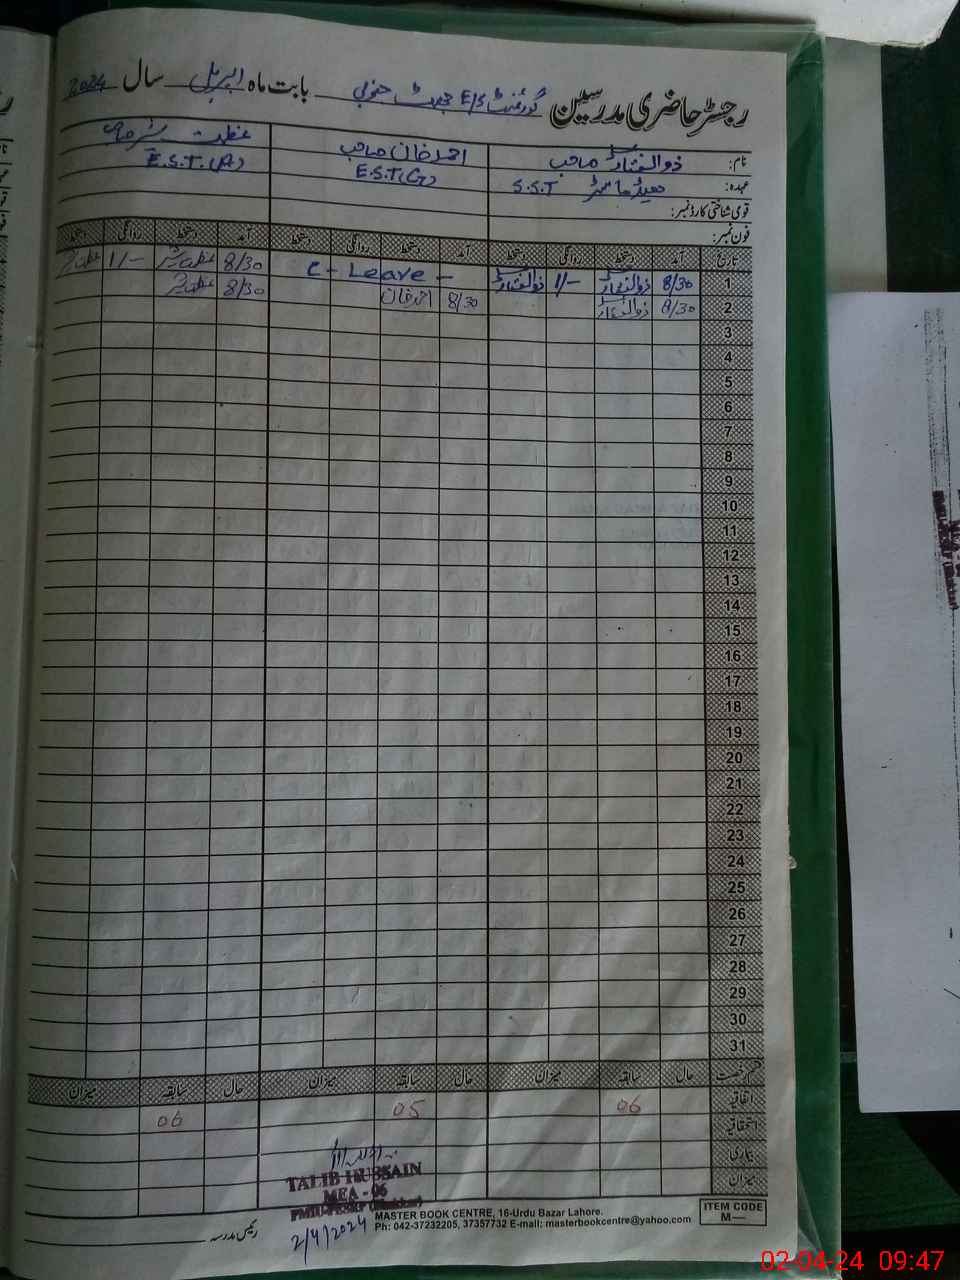 رجسٹر حاضری مدرسین گورنمنٹ E/S جنوبی بابت ماہ اپریل سال 2024
نام: ذوالفقار صاحب احمد خان صاحب عظمت
عہدہ: ہیڈ ماسٹر S.S.T E.S.T(G) E.S.T.(A)
قومی شناختی کارڈ نمبر:
فون نمبر:
تاریخ آمد دستخط روانگی دستخط آمد دستخط روانگی دستخط آمد دستخط روانگی دستخط
1 8/30 ذوالفقار 1/- ذوالفقار C - Leave - 8/30 عظمت 1/- عظمت
2 8/30 ذوالفقار 8/30 احمد خان 8/30 عظمت
3
4
5
6
7
8
9
10
11
12
13
14
15
16
17
18
19
20
21
22
23
24
25
26
27
28
29
30
31
قسم رخصت حال سابقہ میزان حال سابقہ میزان حال سابقہ میزان
اتفاقیہ 06 05 06
استحقاقیہ
بیماری
میزان
TALIB HUSSAIN
MEA - 06
2/4/2024
رئیس مدرسہ
MASTER BOOK CENTRE, 16-Urdu Bazar Lahore.
Ph: 042-37232205, 37357732 E-mail: masterbookcentre@yahoo.com
ITEM CODE
M—
02-04-24 09:47